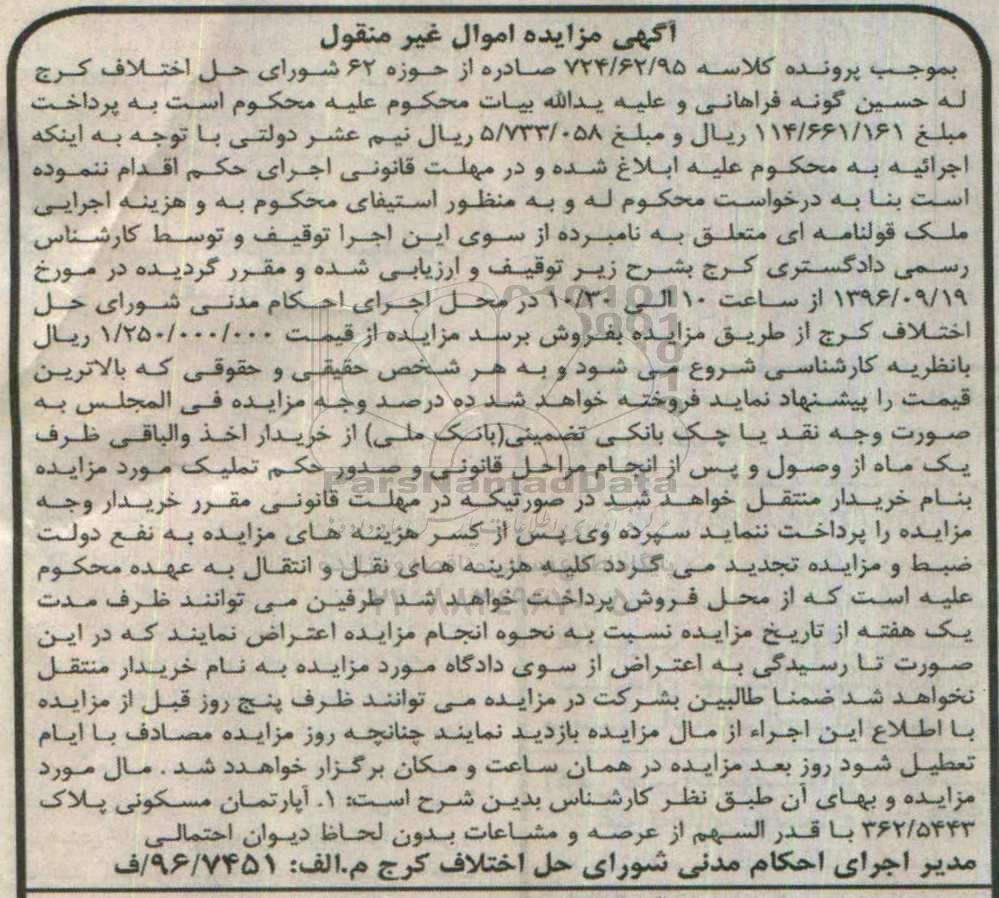 آگهی مزایده اموال غیر منقول
بموجب پرونده کلاسه ۷۲۴/۶۲/۹۵ صادره از حوزه ۶۲ شورای حل اختلاف کرج
له حسین گونه فراهانی و علیه یدالله بیات محکوم علیه محکوم است به پرداخت
مبلغ ۱۱۴/۶۶۱/۱۶۱ ریال و مبلغ ۵/۷۳۳/۰۵۸ ریال نیم عشر دولتی با توجه به اینکه
اجرائیه به محکوم علیه ابلاغ شده و در مهلت قانونی اجرای حکم اقدام ننموده
است بنا به درخواست محکوم له و به منظور استیفای محکوم به و هزینه اجرایی
ملک قولنامه ای متعلق به نامبرده از سوی این اجرا توقیف و توسط کارشناس
رسمی دادگستری کرج بشرح زیر توقیف و ارزیابی شده و مقرر گردیده در مورخ
۱۳۹۶/۰۹/۱۹ از ساعت ۱۰ الی ۱۰/۳۰ در محل اجرای احکام مدنی شورای حل
اختلاف کرج از طریق مزایده بفروش برسد مزایده از قیمت ۱/۲۵۰/۰۰۰/۰۰۰ ریال
بانظریه کارشناسی شروع می شود و به هر شخص حقیقی و حقوقی که بالاترین
قیمت را پیشنهاد نماید فروخته خواهد شد ده درصد وجه مزایده فی المجلس به
صورت وجه نقد یا چک بانکی تضمینی(بانک ملی) از خریدار اخذ والباقی ظرف
یک ماه از وصول و پس از انجام مراحل قانونی و صدور حکم تملیک مورد مزایده
بنام خریدار منتقل خواهد شد در صورتیکه در مهلت قانونی مقرر خریدار وجه
مزایده را پرداخت ننماید سپرده وی پس از کسر هزینه های مزایده به نفع دولت
ضبط و مزایده تجدید می گردد کلیه هزینه های نقل و انتقال به عهده محکوم
علیه است که از محل فروش پرداخت خواهد شد طرفین می توانند ظرف مدت
یک هفته از تاریخ مزایده نسبت به نحوه انجام مزایده اعتراض نمایند که در این
صورت تا رسیدگی به اعتراض از سوی دادگاه مورد مزایده به نام خریدار منتقل
نخواهد شد ضمنا طالبین بشرکت در مزایده می توانند ظرف پنج روز قبل از مزایده
با اطلاع این اجراء از مال مزایده بازدید نمایند چنانچه روز مزایده مصادف با ایام
تعطیل شود روز بعد مزایده در همان ساعت و مکان برگزار خواهدد شد . مال مورد
مزایده و بهای آن طبق نظر کارشناس بدین شرح است: ۱. آپارتمان مسکونی پلاک
۳۶۲/۵۴۴۳ با قدر السهم از عرصه و مشاعات بدون لحاظ دیوان احتمالی
مدیر اجرای احکام مدنی شورای حل اختلاف کرج م.الف: ۹۶/۷۴۵۱/ف
ParsNamadData